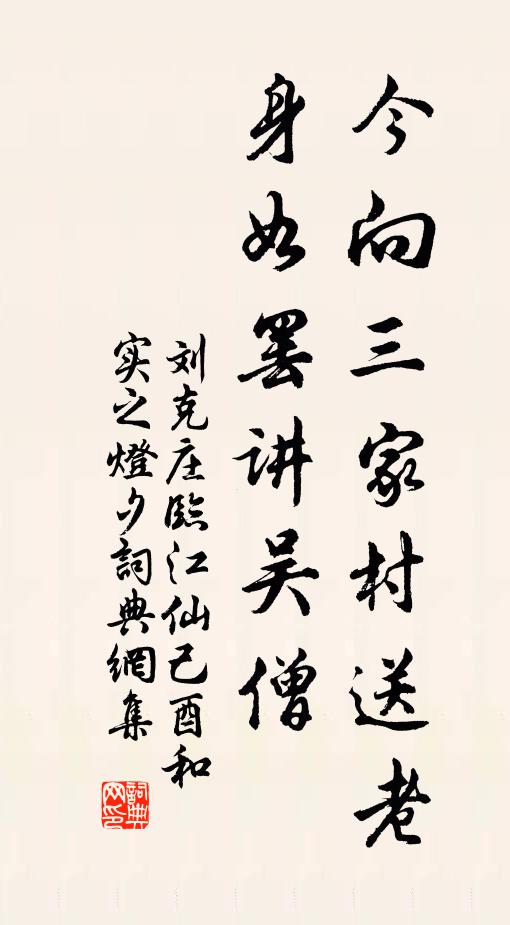 今向三家村送老
身如罢讲吴僧
刘克庄臨江仙己酉和
实之燈夕詞典網集
詞典
网印